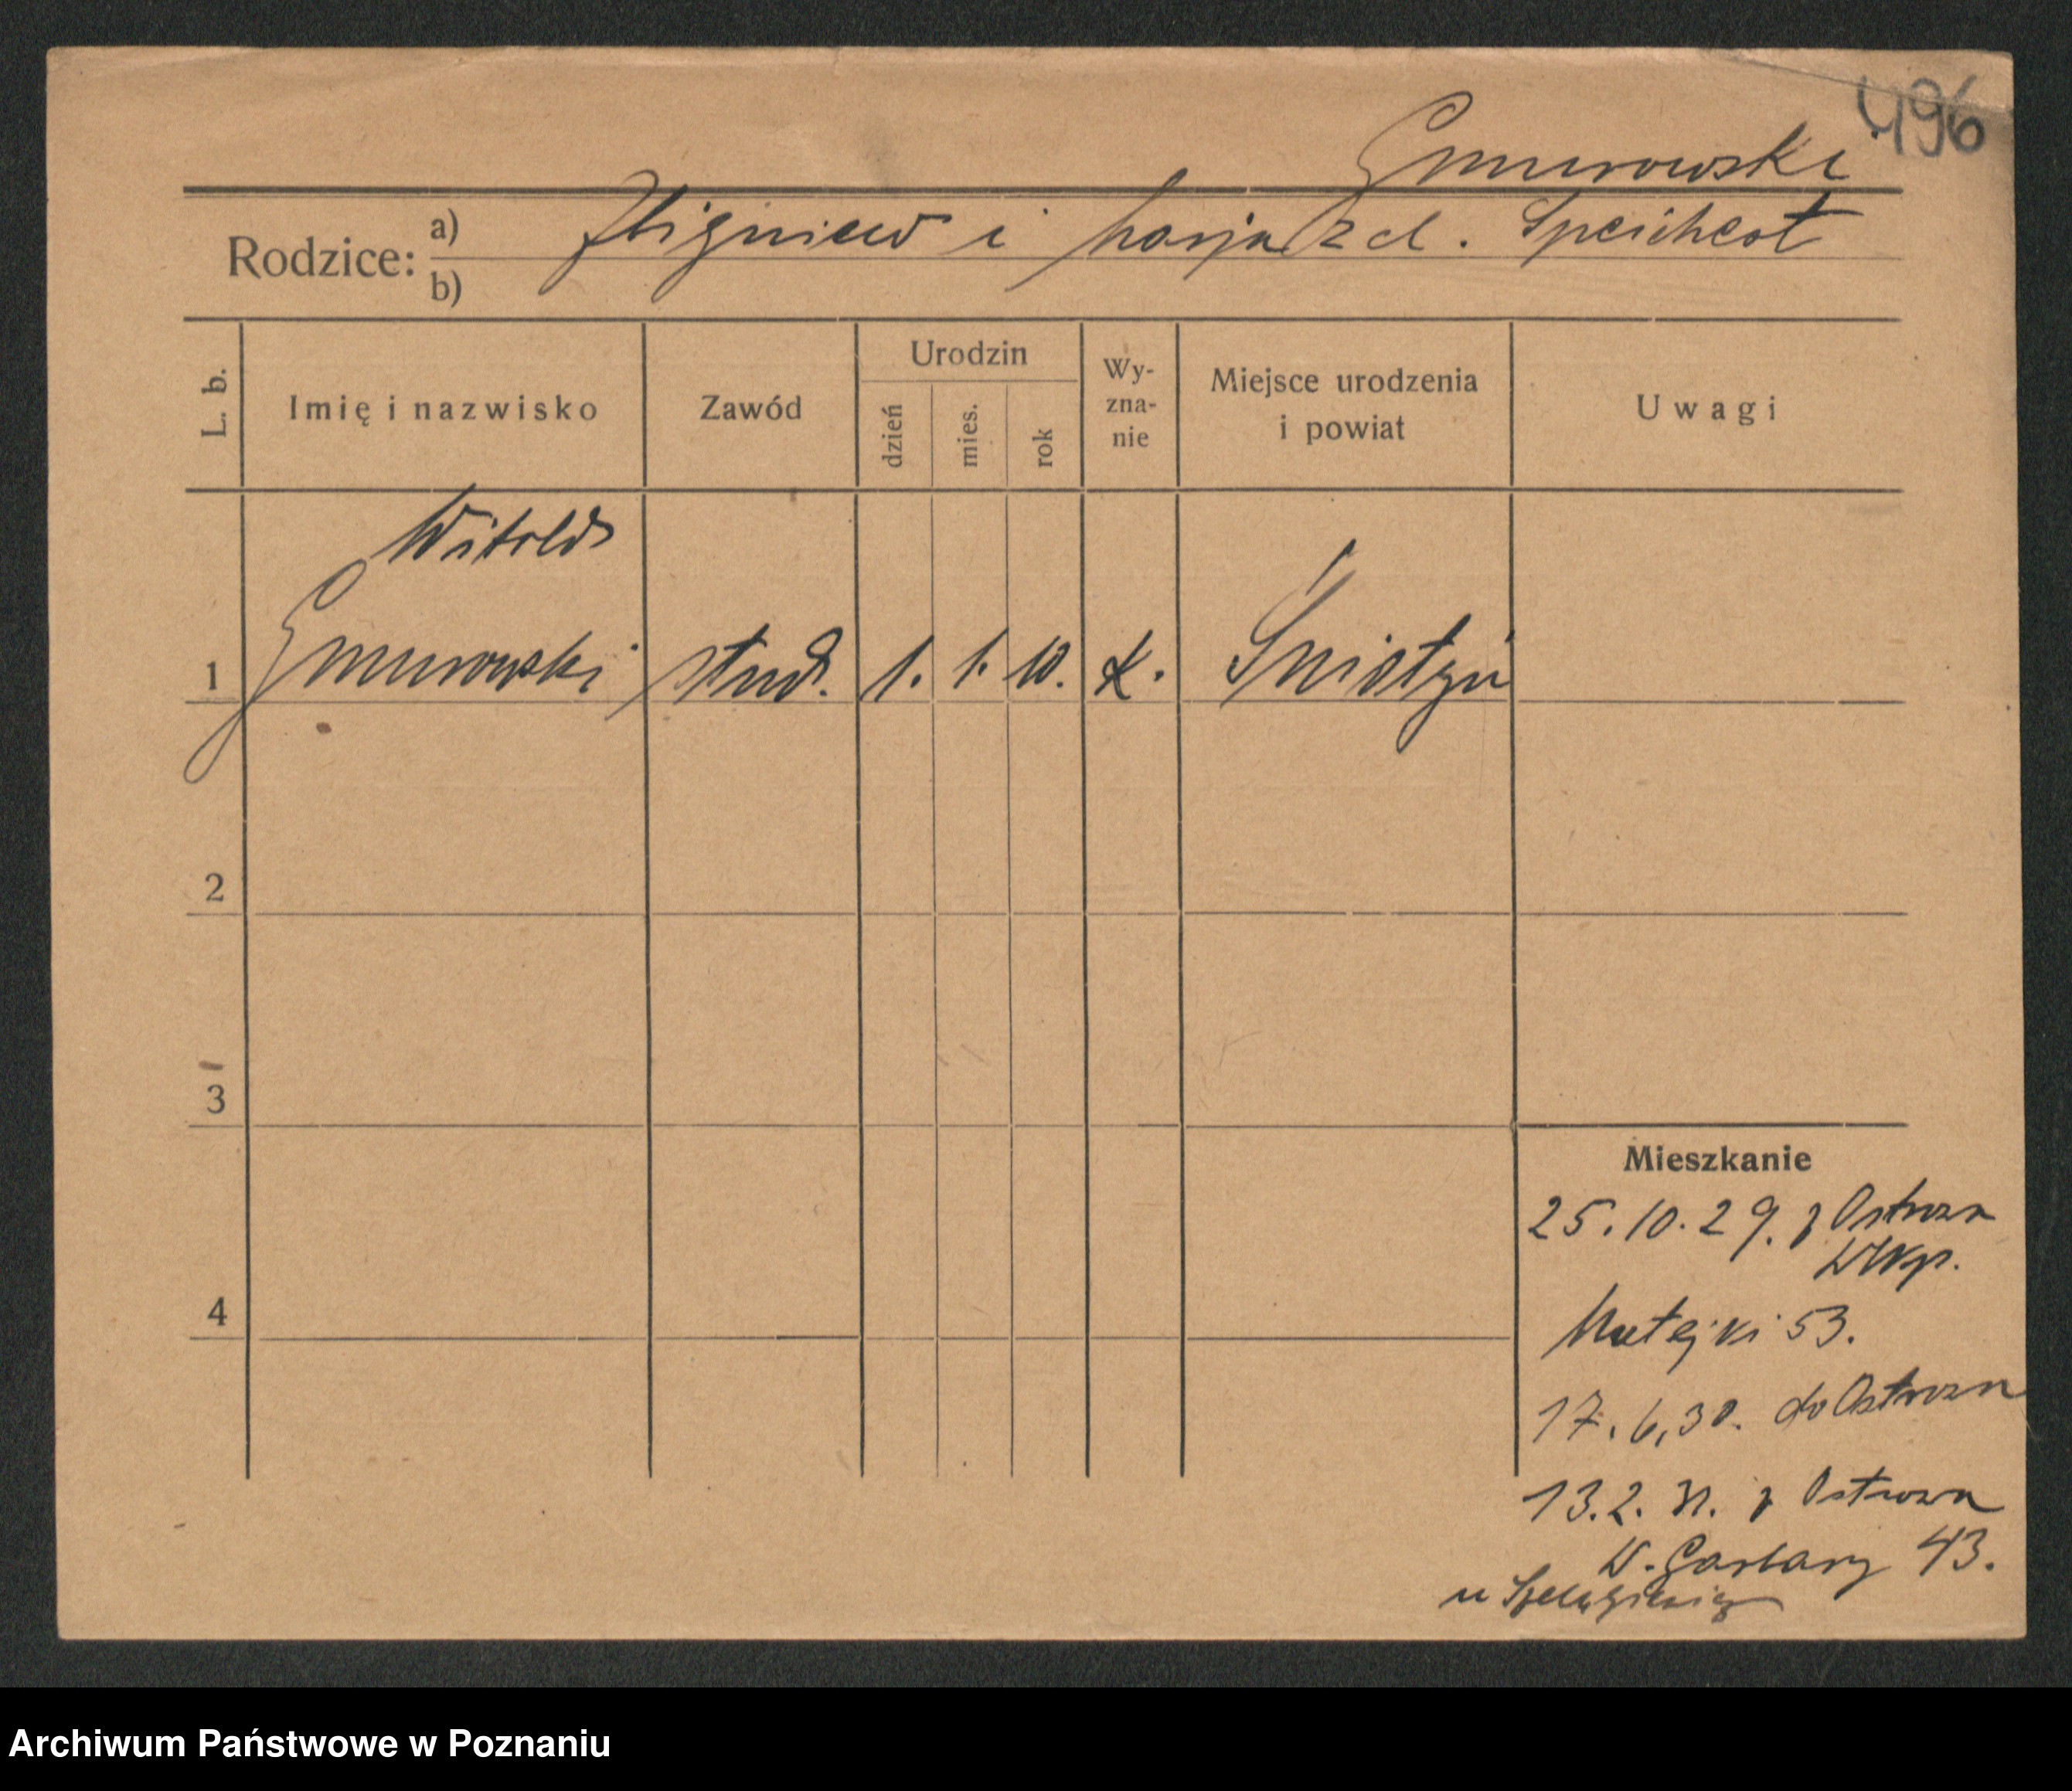 496
Gmurowski
Rodzice: a) Zbigniew i Marja z d. Speichert
b)
L. b. Imię i nazwisko Zawód Urodzin dzień mies. rok Wy-zna-nie Miejsce urodzenia i powiat Uwagi
Witold
1 Gmurowski stud. 1. 1. 10. k.
2
3
Mieszkanie
25.10.29. z Ostrowa
Wlkp.
4
Matejki 53.
17.6.30. do Ostrowa
13.2.31. z Ostrowa
W. Garbary 43.
u
Archiwum Państwowe w Poznaniu